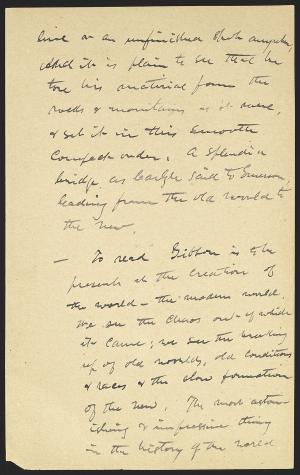 line or an unfinished
and it is plain to see that he
tore his material from the
rocks & mountains as it were,
& set it in this smooth
compact order. A splendid
bridge, as Carlyle said to Emerson,
leading from the old world to
the new.
— To read Gibbon is to be
present at the creation of
the world – the modern world.
We see the chaos out of which
it came; we see the breaking
up of old worlds, old conditions
& races & the slow formation
of the new. The most aston-
ishing & impressive thing
in the history of the world